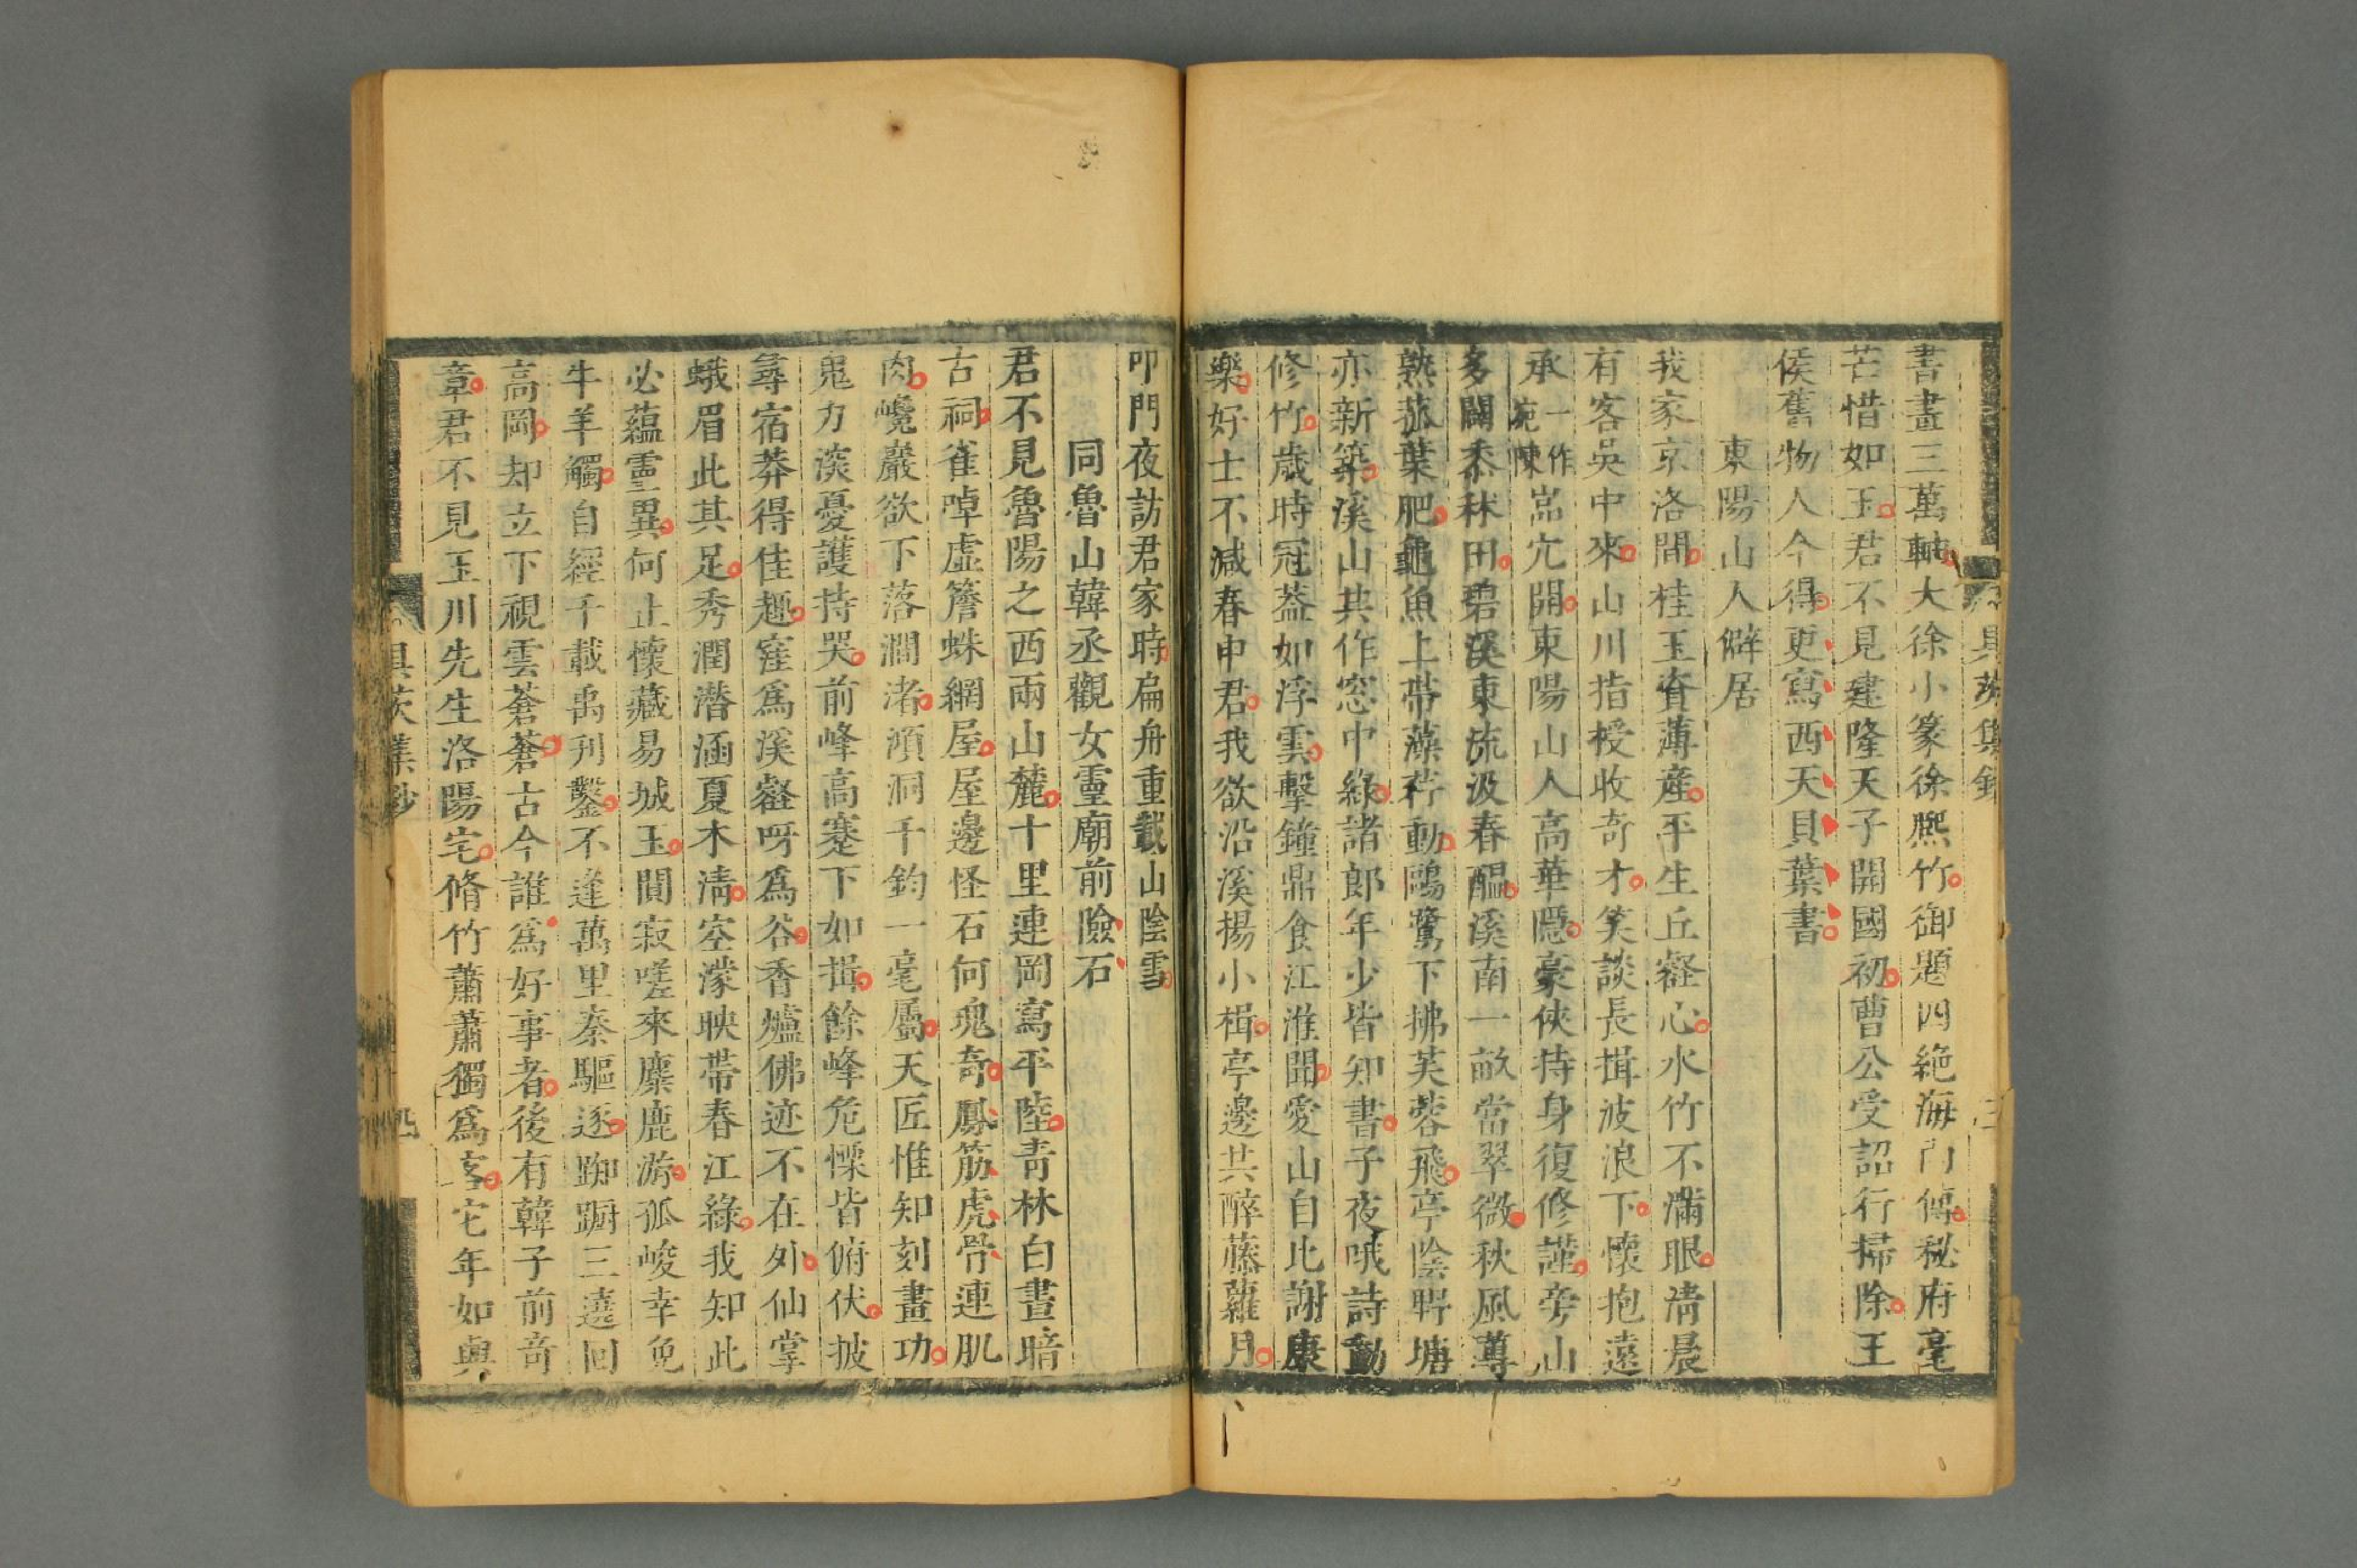 書畫三萬軸大徐小篆徐熙竹御題四絶海内傳秘府毫
芒惜如玉君不見建隆天子開國初曹公受詔行掃除王
侯舊物人今得更寫西天貝葉書
東陽山人僻居
我家京洛間桂玉資薄産平生丘壑心水竹不滿眼清晨
有客吳中來山川指授收奇才笑談長揖波浪下懷抱遠
承一作宛陳嵓宂開東陽山人高華隱豪俠持身復修謹旁山
多闢黍秫田碧溪東流汲春醖溪南一畝當翠微秋風蓴
熟菰葉肥龜魚上帶藻荇動鷗鷺下拂芙蓉飛亭陰野塘
亦新築溪山共作窓中綠諸郎年少皆知書子夜哦詩動
修竹歲時冠葢如浮雲擊鐘鼎食江淮聞愛山自比謝康
樂好士不减春申君我欲沿溪揚小楫亭邊共醉藤蘿月
叩門夜訪君家時扁舟重載山陰雪
同魯山韓丞觀女靈廟前險石
君不見魯陽之西兩山麓十里連岡寫平陸青林白晝暗
古祠雀啅虛簷蛛網屋屋邊怪石何瑰奇鳳筋虎骨連肌
肉巉巖欲下落澗渚澒洞千鈞一毫屬天匠惟知刻畫功
鬼力深憂護持哭前峰高蹇下如揖餘峰危慄皆俯伏披
尋宿莽得佳趣窪爲溪壑呀爲谷香爐佛迹不在外仙掌
蛾眉此其足秀潤潜涵夏木清空濛映帶春江綠我知此
必蘊靈異何止懷藏易城玉閴寂嗟來麋鹿游孤峻幸免
牛羊觸自經千載禹刋鑿不逢萬里秦驅逐踟蹰三遶囘
高岡却立下視雲蒼蒼古今誰爲好事者後有韓子前竒
章君不見玉川先生洛陽宅脩竹蕭蕭獨爲客它年如與
具茨集鈔